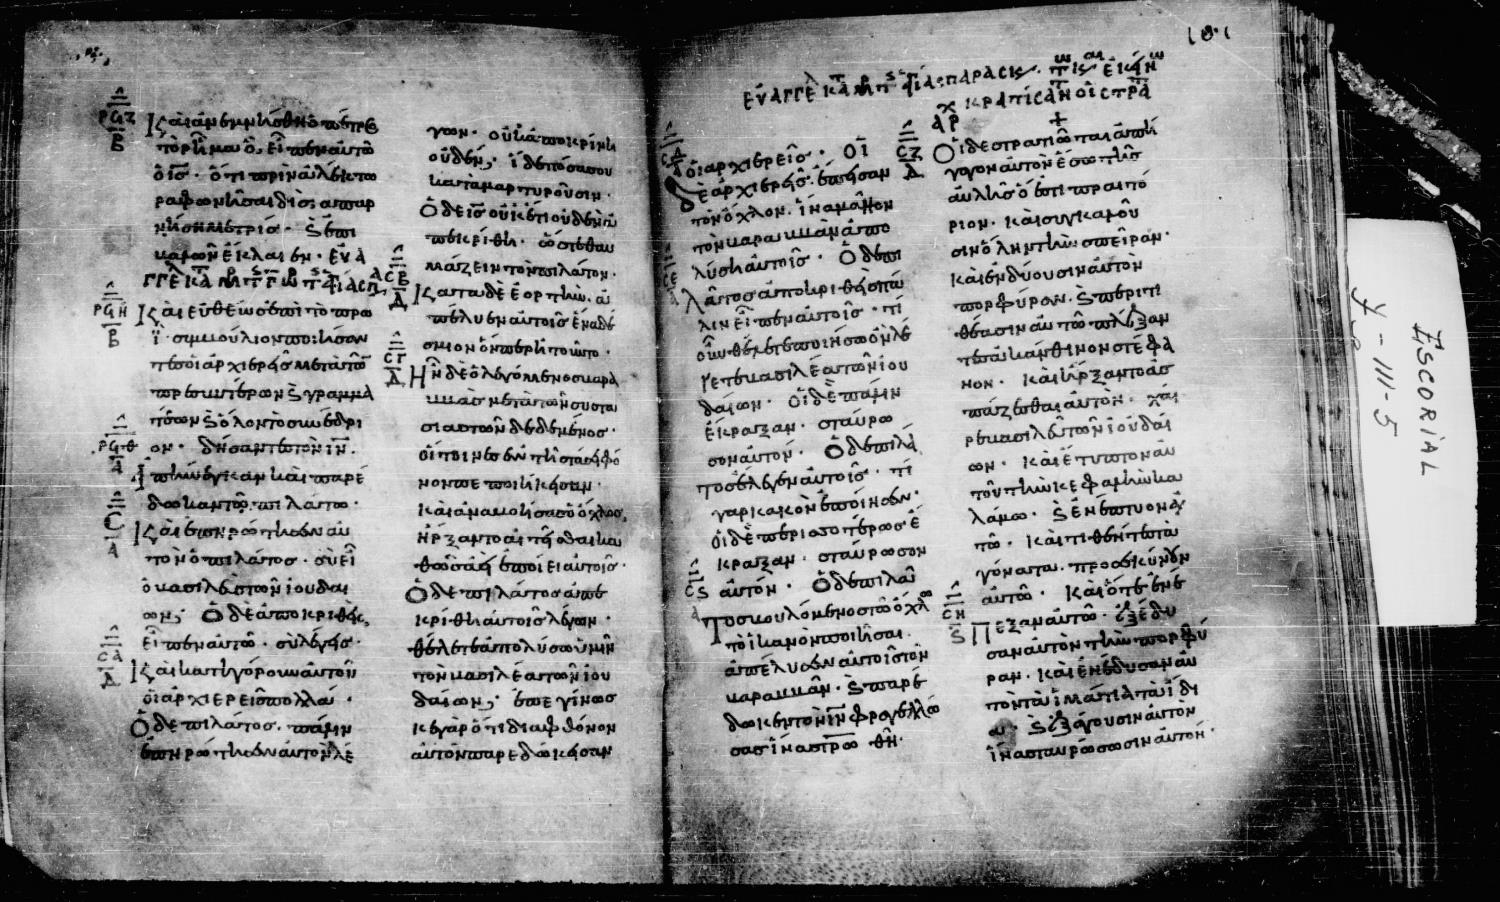 Καὶ ἀνεμνήσθη ὁ πέτρο
τὸ ῥῆμα ὃ εἶπεν αὐτῶ
ὁ ἰς· ὅτι πρὶν ἀλέκτο
ρα φωνῆσαι δὶς ἀπαρ
νήση με τρίς·
καλὼν ἔκλαιεν·
Καὶ εὐθέως ἐπὶ τὸ πρω
ῒ· συμβούλιον ποιήσαν
τες οἱ ἀρχιερεῖς μετὰ τῶν
πρεσβυτέρων γραμμα
τέων ὅλον τὸ συνέδρι
ον· δήσαντες τὸν ιν·
ἀπήνεγκαν καὶ παρέ
δωκαν τῶ πιλάτω·
Καὶ ἐπηρώτησεν αὐ
τὸν ὁ πιλάτος· σὺ εἶ
ὁ βασιλεὺς τῶν ἰουδαί
ων; Ὁ δὲ ἀποκριθεὶς,
εἶπεν αὐτῶ· σὺ λέγεις·
Καὶ κατηγόρουν αὐτοῦ
οἱ ἀρχιερεῖς πολλά·
Ὁ δὲ πιλάτος· πάλιν
ἐπηρώτησεν αὐτὸν λέ
γων· οὐκ ἀποκρίνη
οὐδέν; ἴδε πόσα σου
καταμαρτυροῦσιν·
Ὁ δὲ ις οὐκέτι οὐδὲν ἀ
πεκρίθη· ὥστε θαυ
μάζειν τὸν πιλάτον·
Κατὰ δὲ ἑορτὴν ἀ
πέλυεν αὐτοῖς ἕνα δέ
σμιον ὅνπερ ἠτοῦντο·
Ἦν δὲ ὁ λεγόμενος βαρα
ββᾶς μετὰ τῶν συστα
σιαστῶν δεδεμένος·
οἵτινες ἐν τῆ στάσει φό
νον πεποιήκεισαν·
Καὶ ἀναβοήσας ὁ ὄχλος,
ἤρξαντο αἰτεῖσθαι κα
θὼς ἀεὶ ἐποίει αὐτοῖς·
Ὁ δὲ πιλάτος ἀπε
κρίθη αὐτοῖς λέγων·
θέλετε ἀπολύσω ὑμῖν
τὸν βασιλέα τῶν ἰου
δαίων; ἐπεγίνωσ
κε γὰρ ὅτι διὰ φθόνον
αὐτὸν παρεδώκεισαν
οἱ ἀρχιερεῖς· Οἱ
δὲ ἀρχιερεῖς ἔπεισαν
τὸν ὄχλον· ἵνα μᾶλλον
τὸν βαραββᾶν ἀπο
λύση αὐτοῖς· Ὁ δὲ πι
λάτος ἀποκριθεὶς πά
λιν εἶπεν αὐτοῖς· τί
οὖν θέλετε ποιήσω ὃν λέ
γετε βασιλέα τῶν ἰου
δαίων· Οἱ δὲ πάλιν
ἔκραξαν· σταύρω
σον αὐτόν· Ὁ δὲ πιλά
τος ἔλεγεν αὐτοῖς· τί
γὰρ κακὸν ἐποίησεν·
Οἱ δὲ περισσοτέρως ἔ
κραξαν· σταύρωσον
αὐτόν· Ὁ δὲ πιλᾶ
τος βουλόμενος τῶ ὄχλω
τὸ ἱκανὸν ποιῆσαι·
ἀπέλυσεν αὐτοῖς τὸν
βαραββᾶν· παρέ
δωκεν τὸν ιν φραγελλώ
σας ἵνα σταυρωθῆ·
Οἱ δὲ στρατιῶται ἀπή
γαγον αὐτὸν ἔσω τῆς
αὐλῆς ὅ ἐστι πραιτώ
ριον· καὶ συγκαλοῦ
σιν ὅλην τὴν σπεῖραν·
καὶ ἐνδύουσιν αὐτὸν
πορφύραν· περιτι
θέασιν αὐτῶ πλέξαν
τες ἀκάνθινον στέφα
νον· καὶ ἤρξαντο ἀσ
πάζεσθαι αὐτόν· χαῖ
ρε βασιλεῦ τῶν ἰουδαί
ων· Καὶ ἔτυπτον αὐ
τοῦ τὴν κεφαλὴν κα
λάμω· ἐνέπτυον αὐ
τῶ· καὶ τιθέντες τὰ
γόνατα· προσεκύνουν
αὐτῶ· Καὶ ὅτε ἐνέ
πεξαν αὐτῶ· ἐξέδυ
σαν αὐτὸν τὴν πορφύ
ραν· καὶ ἐνέδυσαν αὐ
τὸν τὰ ἱμάτια τὰ ἴδι
α· ἐξάγουσιν αὐτὸν
ἵνα σταυρώσωσιν αὐτόν·
ESCORIAL
Y-III-5